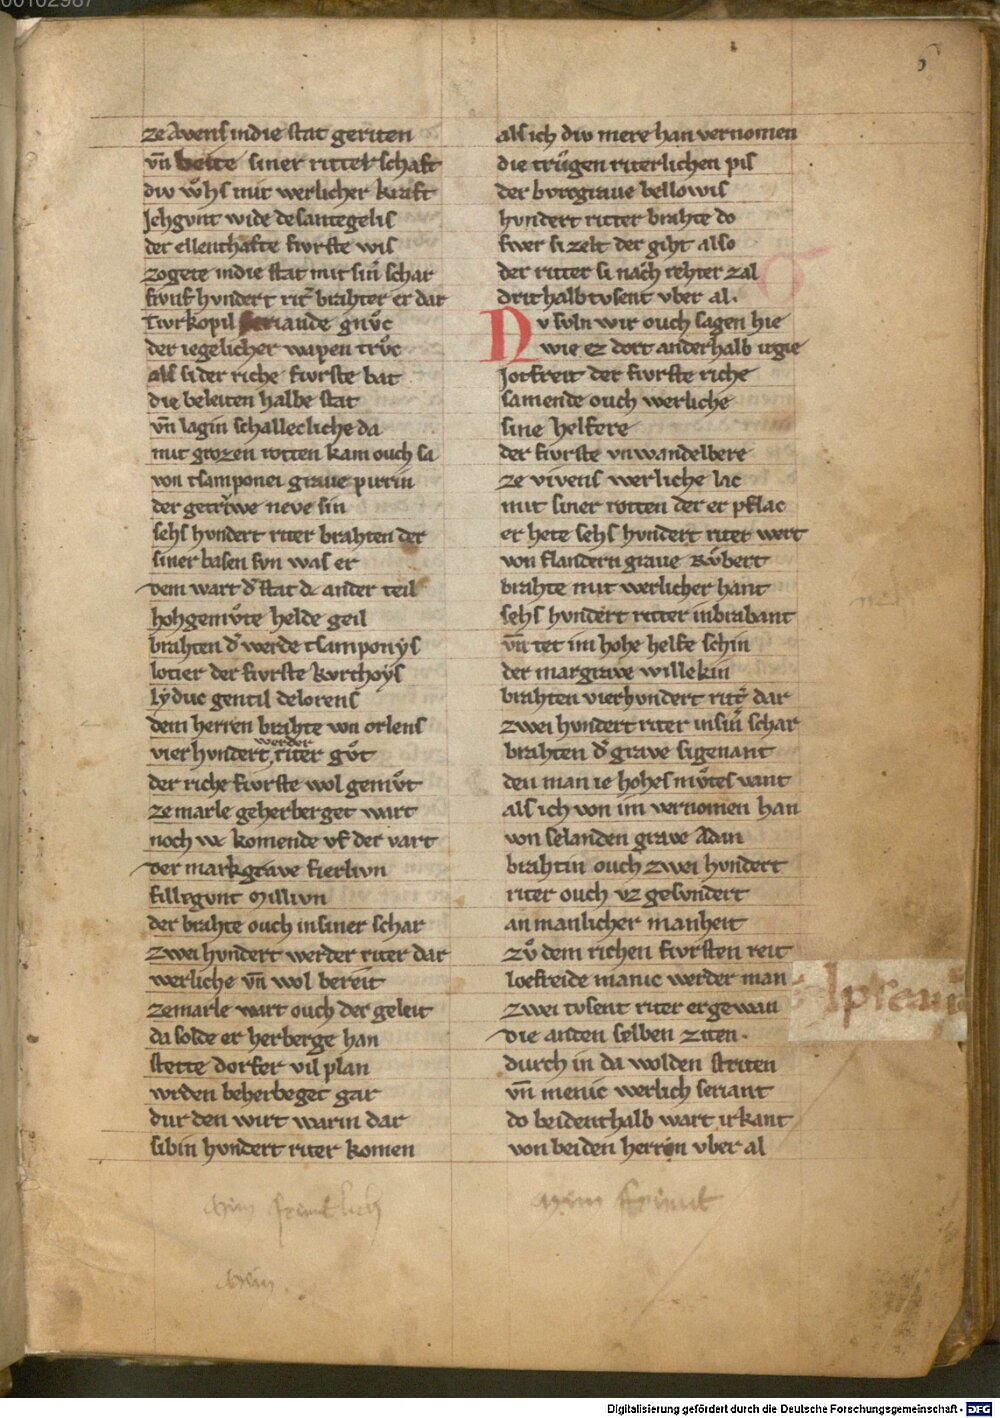 ze Avens in die stat geriten
vn̄ beite siner ritterschaft
diw wͦhs mit werlicher kraft
Jehgunt wide desantegelis
der ellenthafte fiurste wis
zogete in die stat mit sin̄ schar
fiunf hvndert rit᷑ brahter er dar
Tvrkopil seriande gnvͦc
der iegelicher wapen trvͦc
als si der riche fivrste bat
die beleiten halbe stat
vn̄ lagin schallecliche da
mit grozen rotten kam ouch sa
von tsamponei graue pirrin
der getriwe neve sin
sehs hvndert riter brahten der
siner basen svn was er
dem wart d᷑ stat dc ander teil
hohgemvͦte helde geil
brahten d᷑ werde tsamponẏs
lotier der fvrste kvrthoẏs
lẏduc gentil delorens
dem herren brahte von orlens
werder
vierhvndert riter gvͦt
der riche fivrste wol gemvͦt
ze marle geherberget wart
noch wc komende vf der vart
der markgrave fierlivn
fillegvnt Millivn
der brahte ouch in siner schar
zwei hvndert werder riter dar
werliche vn̄ wol bereit
ze marle wart ouch der geleit
da solde er herberge han
stette dorfer vil plan
wrden beherbeget gar
dur den wirt warin dar
sibin hvndert riter komen
als ich diw mere han vernomen
die trvͤgen riterlichen pis
der bvrcgraue bellowis
hvndert ritter brahte do
swer si zelt der giht also
der ritter si nach rehter zal
drithalb tvsent vber al.
Nv svln wir ouch sagen hie
wie ez dort anderhalb irgie
Jotfreit der fivrste riche
samende ouch werliche
sine helfere
der fivrste vnwandelbere
ze vivens werliche lac
mit siner rotten der er pflac
er hete sehs hvndert riter wert
von flandern graue Rvͦbert
brahte mit werlicher hant
sehs hvndert ritter in brabant
vn̄ tet im hohe helfe schin
der margrave willekin
brahten vierhvndert rit᷑ dar
zwei hvndert riter in sin̄ schar
brahten d᷑ grave sigenant
den man ie hohes mvͦtes vant
als ich von im vernomen han
von selanden grave Adin
brahtin ouch zwei hvndert
riter ouch vz gesvndert
an manlicher manheit
zvͦ dem richen fivrsten reit
loefreide manic werder man
zwei tvsent riter er gewan
die anden selben ziten.
durch in da wolden striten
vn̄ menic werlich seriant
do beidenthalb wart irkant
von beiden herren vber al
Digitalisierung gefördert durch die Deutsche Forschungsgemeinschaft - DFG